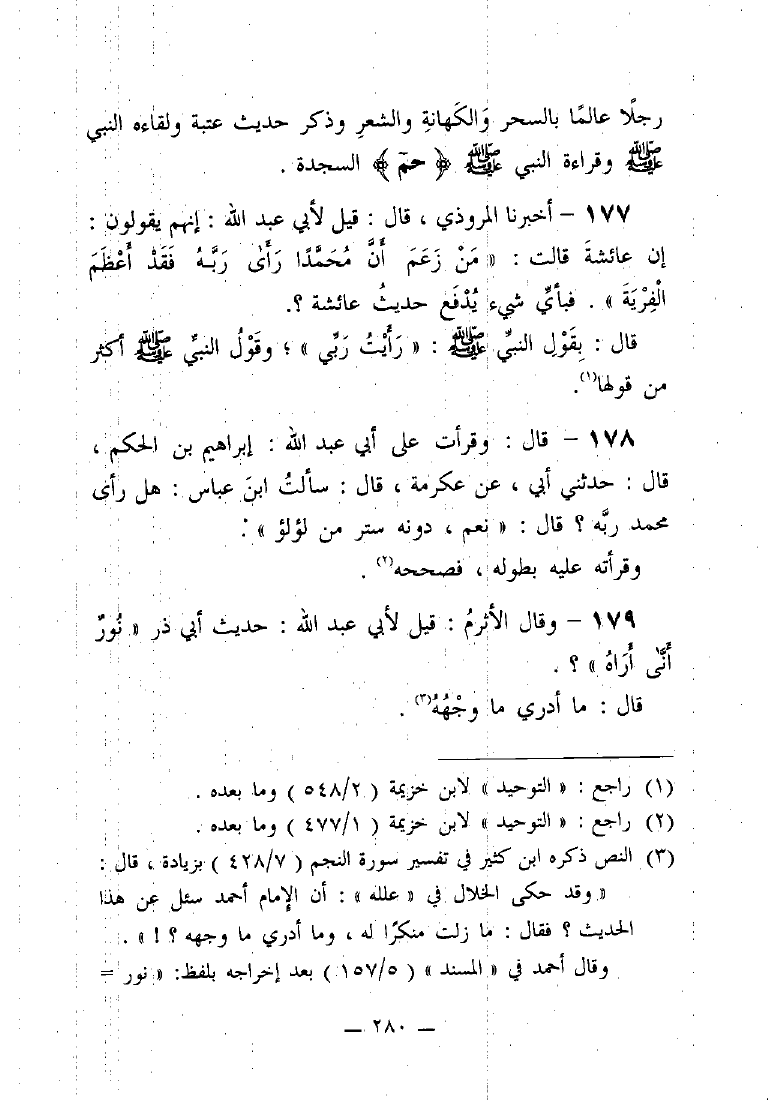 رجلًا عالمًا بالسحر وَالكَهانةِ والشعرِ وذكر حديث عتبة ولقاءه النبي
ﷺ وقراءة النبي ﷺ ﴿ حمٓ ﴾ السجدة .
١٧٧ – أخبرنا المروذي ، قال : قيل لأبي عبد الله : إنهم يقولون :
إن عائشةَ قالت : « مَنْ زَعَمَ أَنَّ مُحَمَّدًا رَأَىٰ رَبَّـهُ فَقَدْ أَعْظَمَ
الْفِرْيَةَ » . فبأيِّ شيء يُدْفَع حديثُ عائشة ؟.
قال : بِقَوْلِ النبيِّ ﷺ : « رَأَيْتُ رَبِّي » ؛ وقَوْلُ النبيِّ ﷺ أكثر
من قولها(١).
١٧٨ – قال : وقرأت على أبي عبد الله : إبراهيم بن الحكم ،
قال : حدثني أبي ، عن عكرمة ، قال : سألتُ ابنَ عباس : هل رأى
محمد ربَّه ؟ قال : « نعم ، دونه ستر من لؤلؤ » .
وقرأته عليه بطوله ، فصححه(٢) .
١٧٩ – وقال الأثرمُ : قيل لأبي عبد الله : حديث أبي ذر « نُورٌ
أَنَّىٰ أَرَاهُ » ؟ .
قال : ما أدري ما وجْهُهُ(٣) .
(١) راجع : « التوحيد » لابن خزيمة ( ٥٤٨/٢ ) وما بعده .
(٢) راجع : « التوحيد » لابن خزيمة ( ٤٧٧/١ ) وما بعده .
(٣) النص ذكره ابن كثير في تفسير سورة النجم ( ٤٢٨/٧ ) بزيادة ، قال :
« وقد حكى الخلال في « علله » : أن الإمام أحمد سئل عن هذا
الحديث ؟ فقال : ما زلت منكرًا له ، وما أدري ما وجهه ؟ ! » .
وقال أحمد في « المسند » ( ١٥٧/٥ ) بعد إخراجه بلفظ: « نور =
— ٢٨٠ —